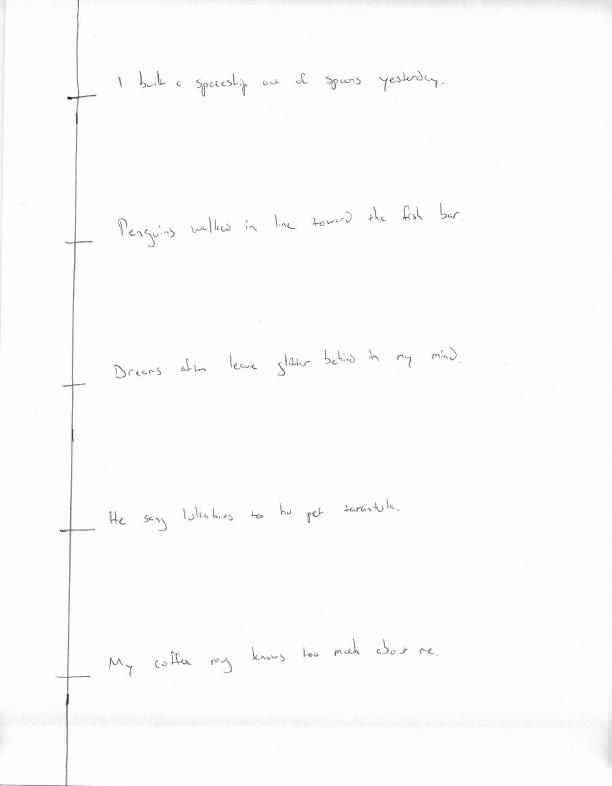 I built a spaceship out of spoons yesterday.
Penguins walked in line toward the fish bar.
Dreams often leave glitter behind in my mind.
He sang lullabies to his pet tarantula.
My coffee mug knows too much about me.